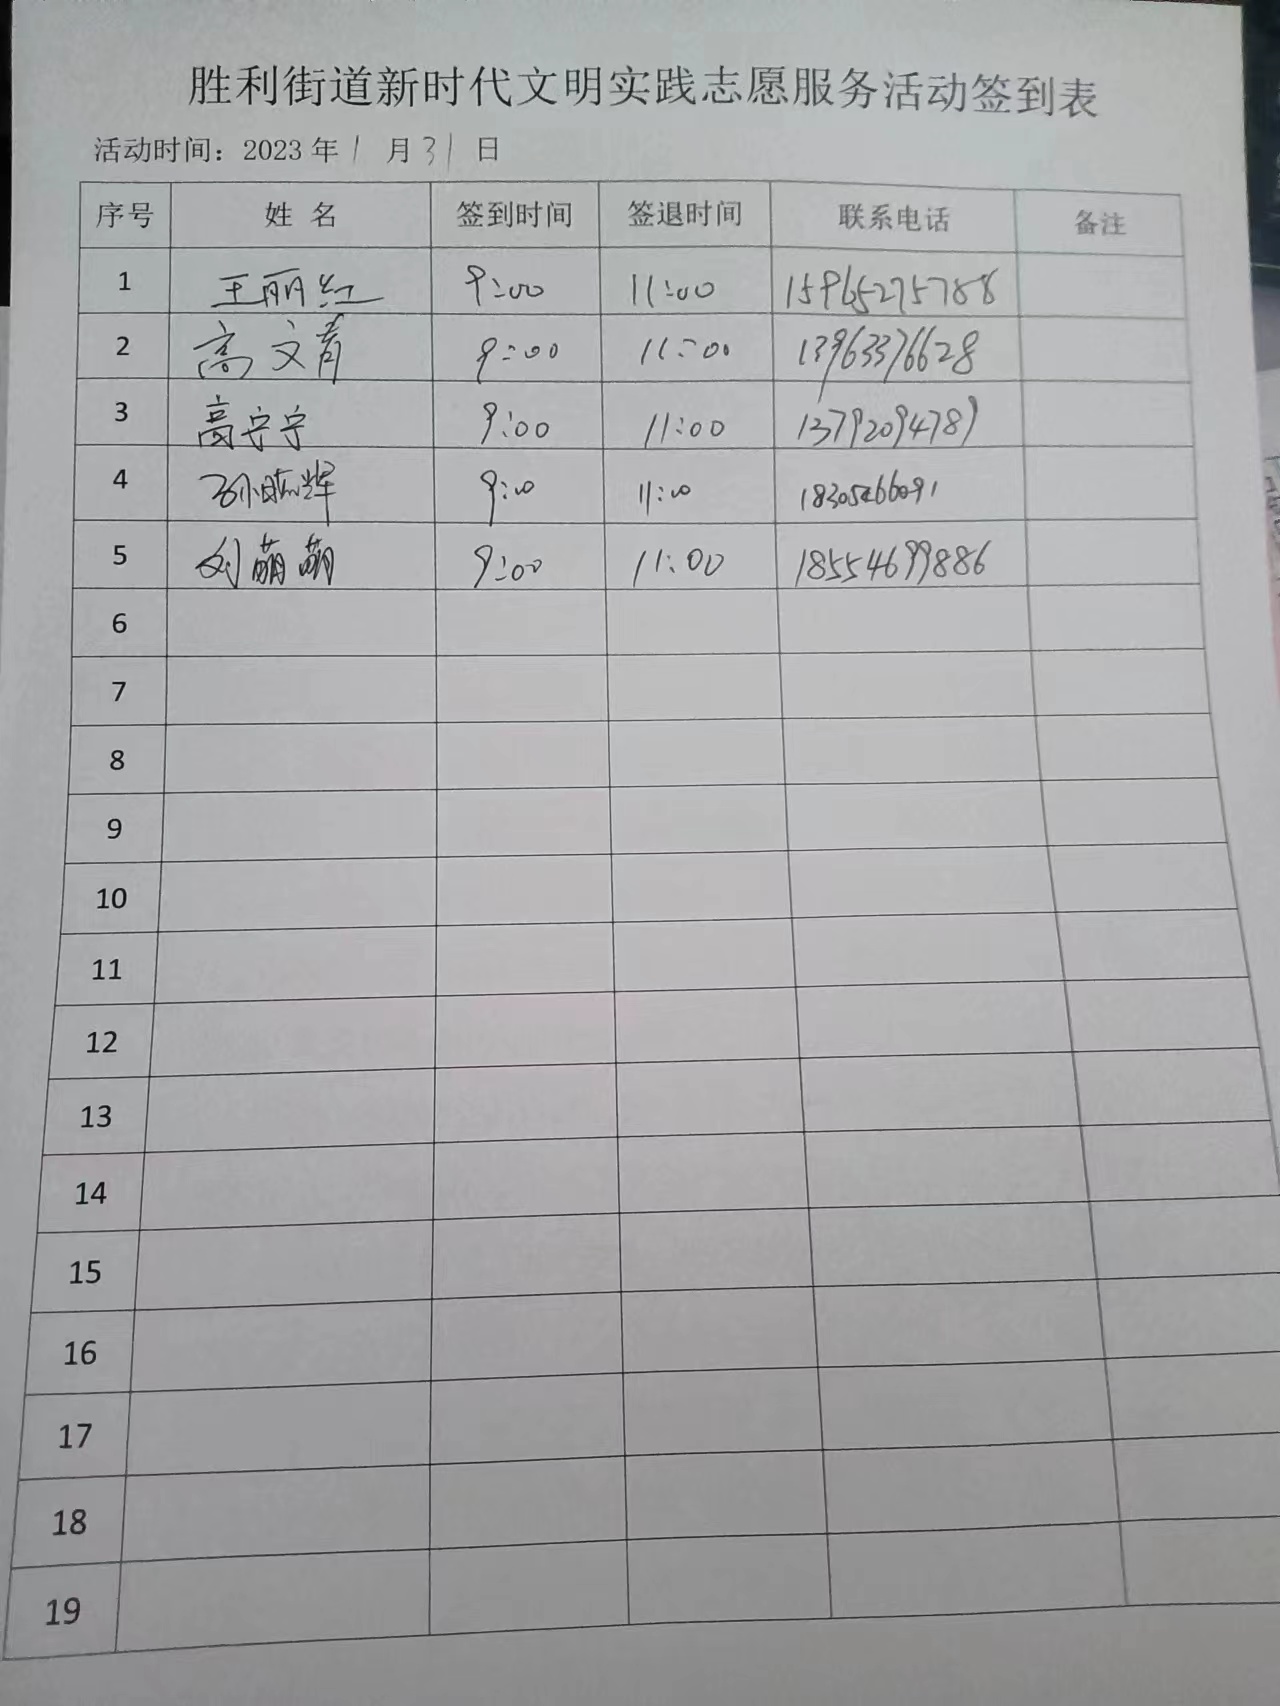 胜利街道新时代文明实践志愿服务活动签到表
活动时间：2023 年 1 月 31 日
序号 姓 名 签到时间 签退时间 联系电话 备注
1 王丽红 9:00 11:00 15965275788
2 高文青 9:00 11:00 13963376628
3 高宁宁 9:00 11:00 13792094789
4 9:00 11:00
5 刘萌萌 9:00 11:00 18554699886
6
7
8
9
10
11
12
13
14
15
16
17
18
19